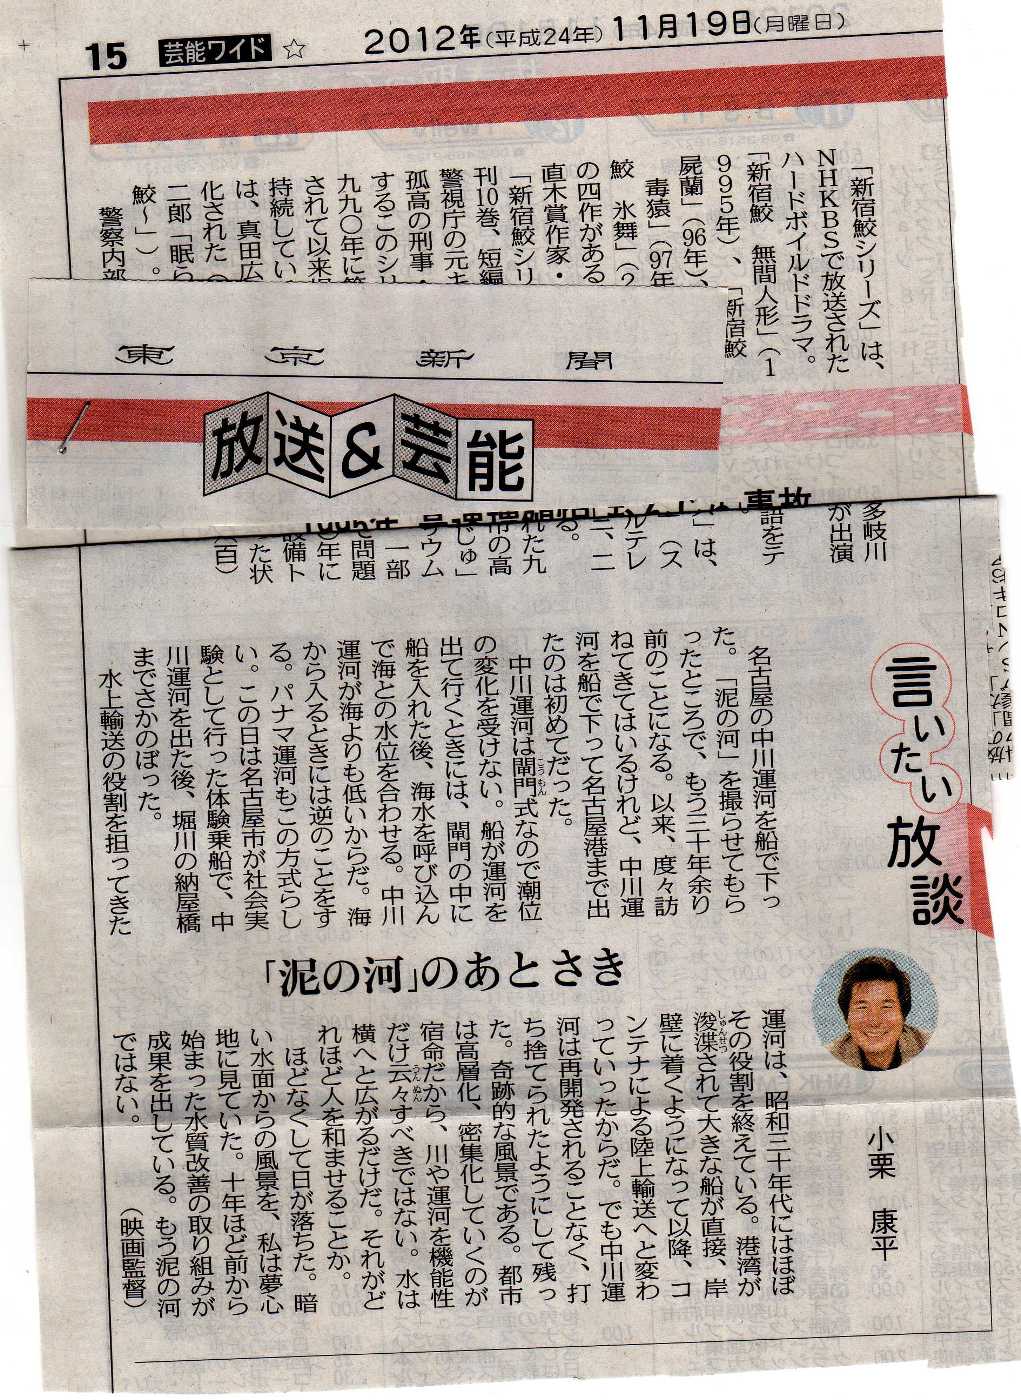 15 芸能ワイド ☆ 2012年(平成24年)11月19日(月曜日)
「新宿鮫シリーズ」は、
NHKBSで放送された
ハードボイルドドラマ。
「新宿鮫 無間人形」(1
995年)、「新宿鮫
屍蘭」(96年)、
毒猿」(97年
鮫 氷舞」(2
の四作がある
直木賞作家・
「新宿鮫シリ
刊10巻、短編
警視庁の元キ
孤高の刑事・
するこのシリ
九九〇年に第
されて以来
持続してい
は、真田広
化された(
二郎「眠ら
鮫〜」)。
警察内部
東京新聞
放送&芸能
事故
多岐川
が出演
語をテ
」は、
(ス
ルテレ
三、二
る。
れた九
市の高
じゅ」
ウム
一部
を問題
)年に
設備ト
た状
(百)
言いたい放談
小栗 康平
「泥の河」のあとさき
名古屋の中川運河を船で下っ
た。「泥の河」を撮らせてもら
ったところで、もう三十年余り
前のことになる。以来、度々訪
ねてきてはいるけれど、中川運
河を船で下って名古屋港まで出
たのは初めてだった。
中川運河は閘門(こうもん)式なので潮位
の変化を受けない。船が運河を
出て行くときには、閘門の中に
船を入れた後、海水を呼び込ん
で海との水位を合わせる。中川
運河が海よりも低いからだ。海
から入るときには逆のことをす
る。パナマ運河もこの方式らし
い。この日は名古屋市が社会実
験として行った体験乗船で、中
川運河を出た後、堀川の納屋橋
までさかのぼった。
水上輸送の役割を担ってきた
運河は、昭和三十年代にはほぼ
その役割を終えている。港湾が
浚渫(しゅんせつ)されて大きな船が直接、岸
壁に着くようになって以降、コ
ンテナによる陸上輸送へと変わ
っていったからだ。でも中川運
河は再開発されることなく、打
ち捨てられたようにして残っ
た。奇跡的な風景である。都市
は高層化、密集化していくのが
宿命だから、川や運河を機能性
だけ云々(うんぬん)すべきではない。水は
横へと広がるだけだ。それがど
れほど人を和ませることか。
ほどなくして日が落ちた。暗
い水面からの風景を、私は夢心
地に見ていた。十年ほど前から
始まった水質改善の取り組みが
成果を出している。もう泥の河
ではない。
(映画監督)